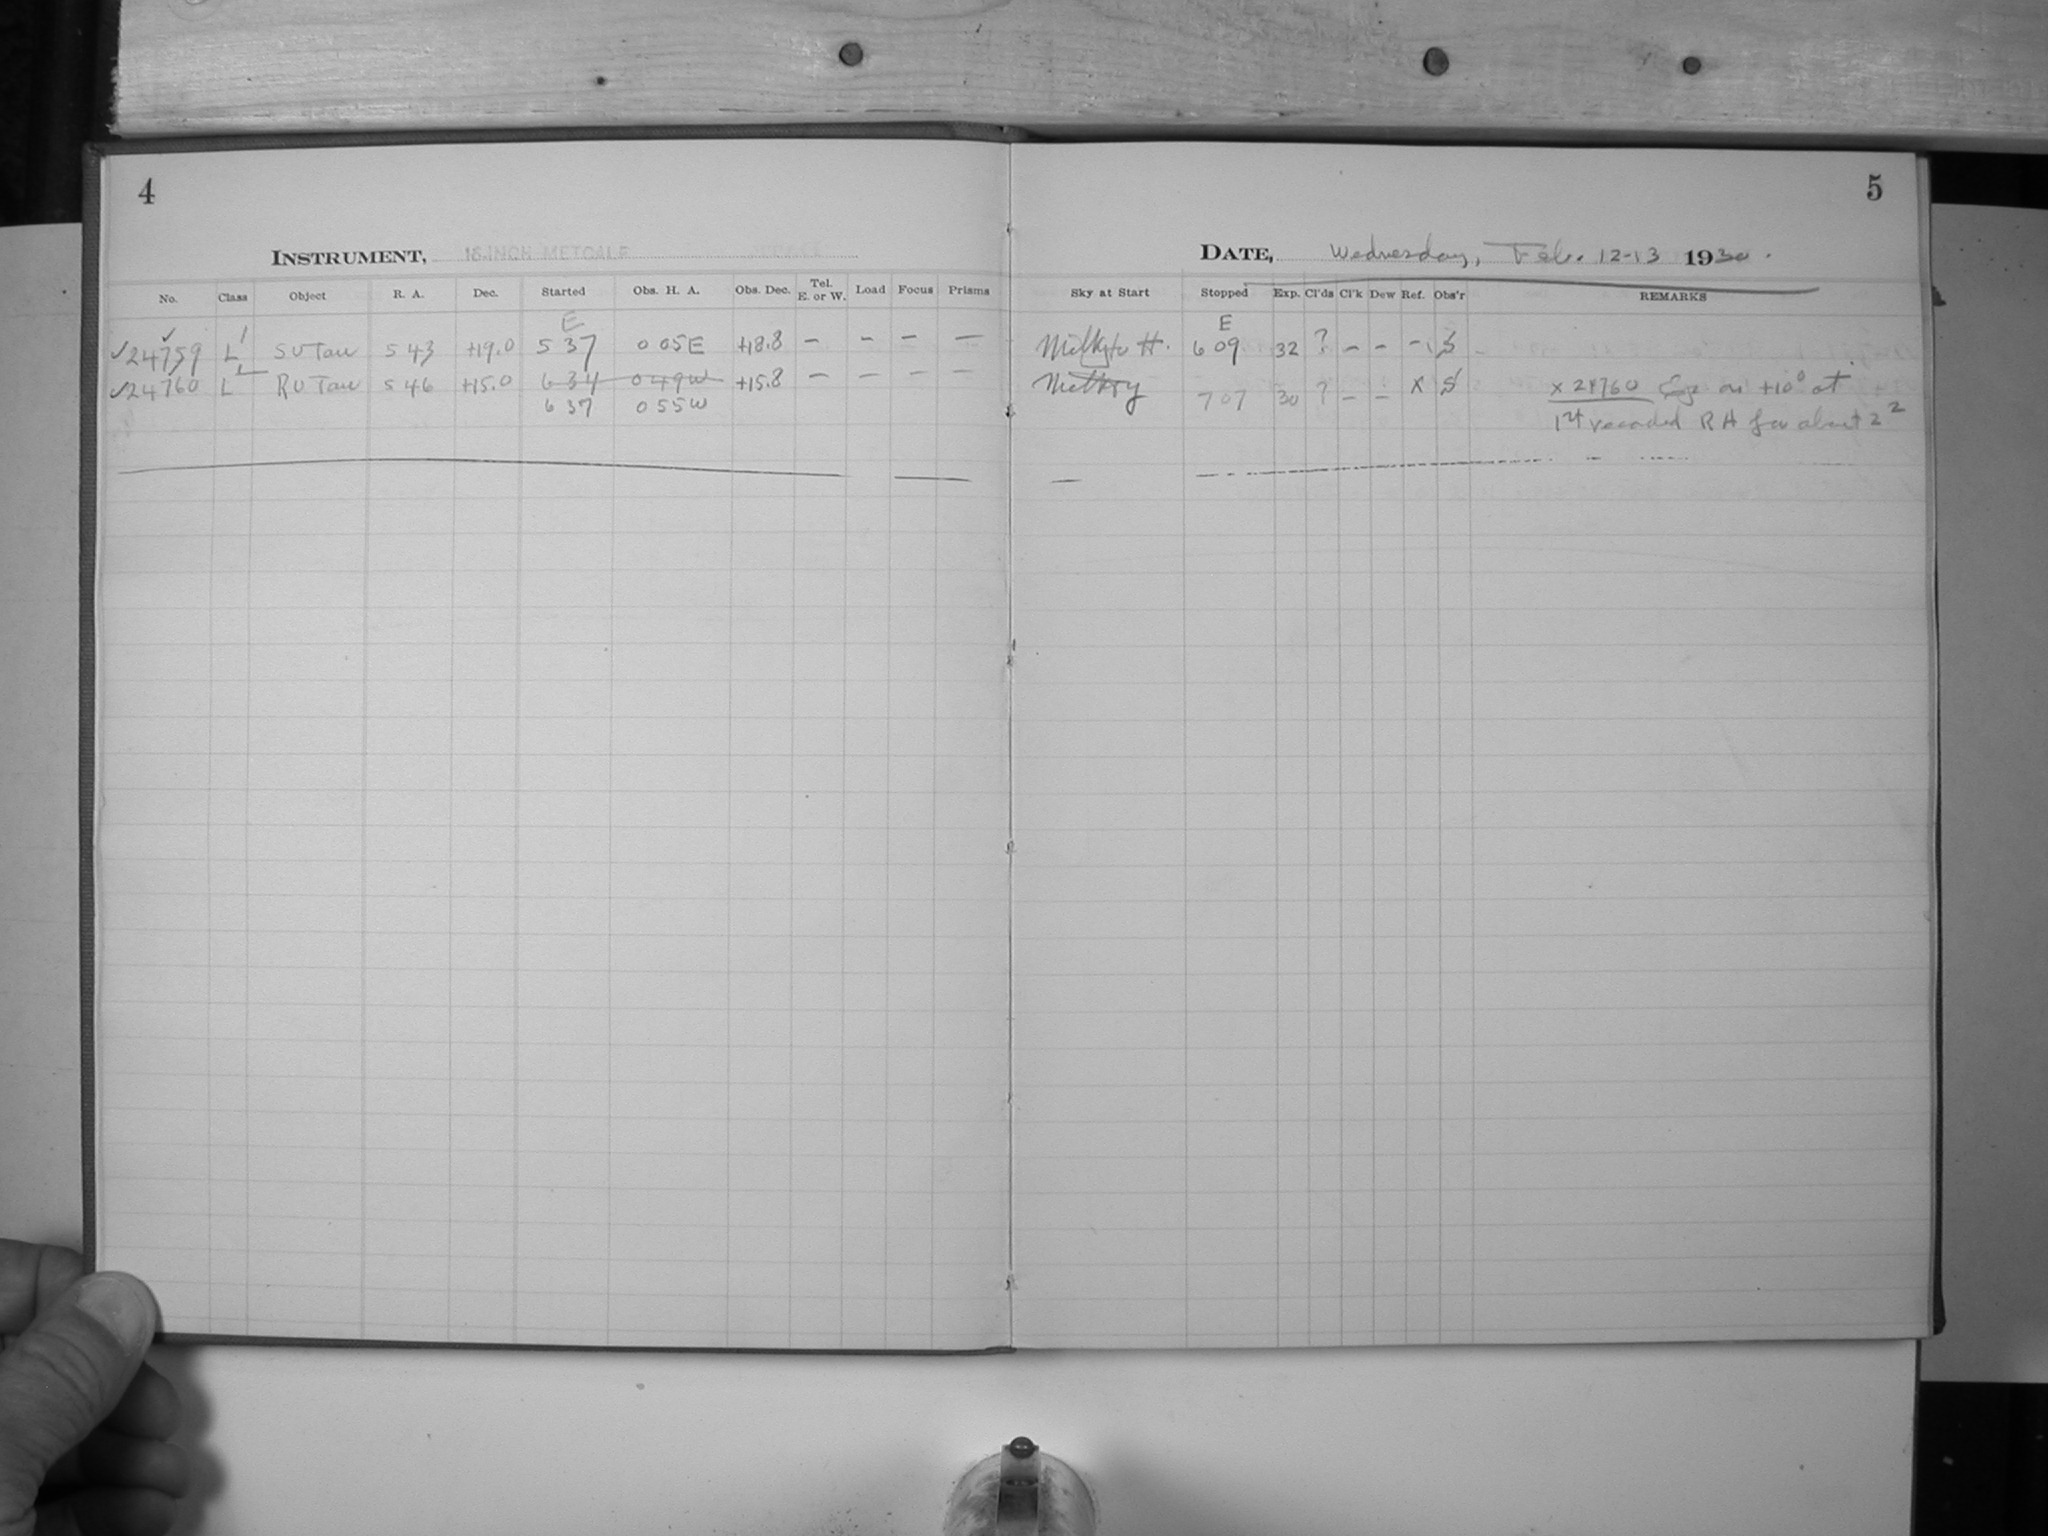 4
INSTRUMENT, 16-INCH METCALF
No. Class Object R. A. Dec. Started Obs. H. A. Obs. Dec. Tel. E. or W. Load Focus Prisms
E
✓24759 L SU Tau 5 43 +19.0 5 37 0 05E +18.8 — — — —
✓24760 L RU Tau 5 46 +15.0 6 34 0 49W +15.8 — — — —
6 37 0 55W
5
DATE, Wednesday, Feb. 12-13 1930.
Sky at Start Stopped Exp. Cl'ds Cl'k Dew Ref. Obs'r REMARKS
E
Milky to H. 6 09 32 ? — — — S
Milky 7 07 30 ? — — x S x 24760 on +10° at
1st recorded R H for about 2